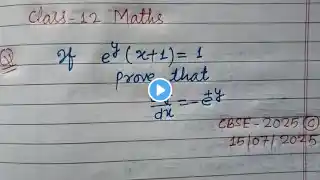 Class-12 Maths
Q If e^y (x+1) = 1
prove that
dx = -e^y
CBSE-2025 (C)
15/07/2025